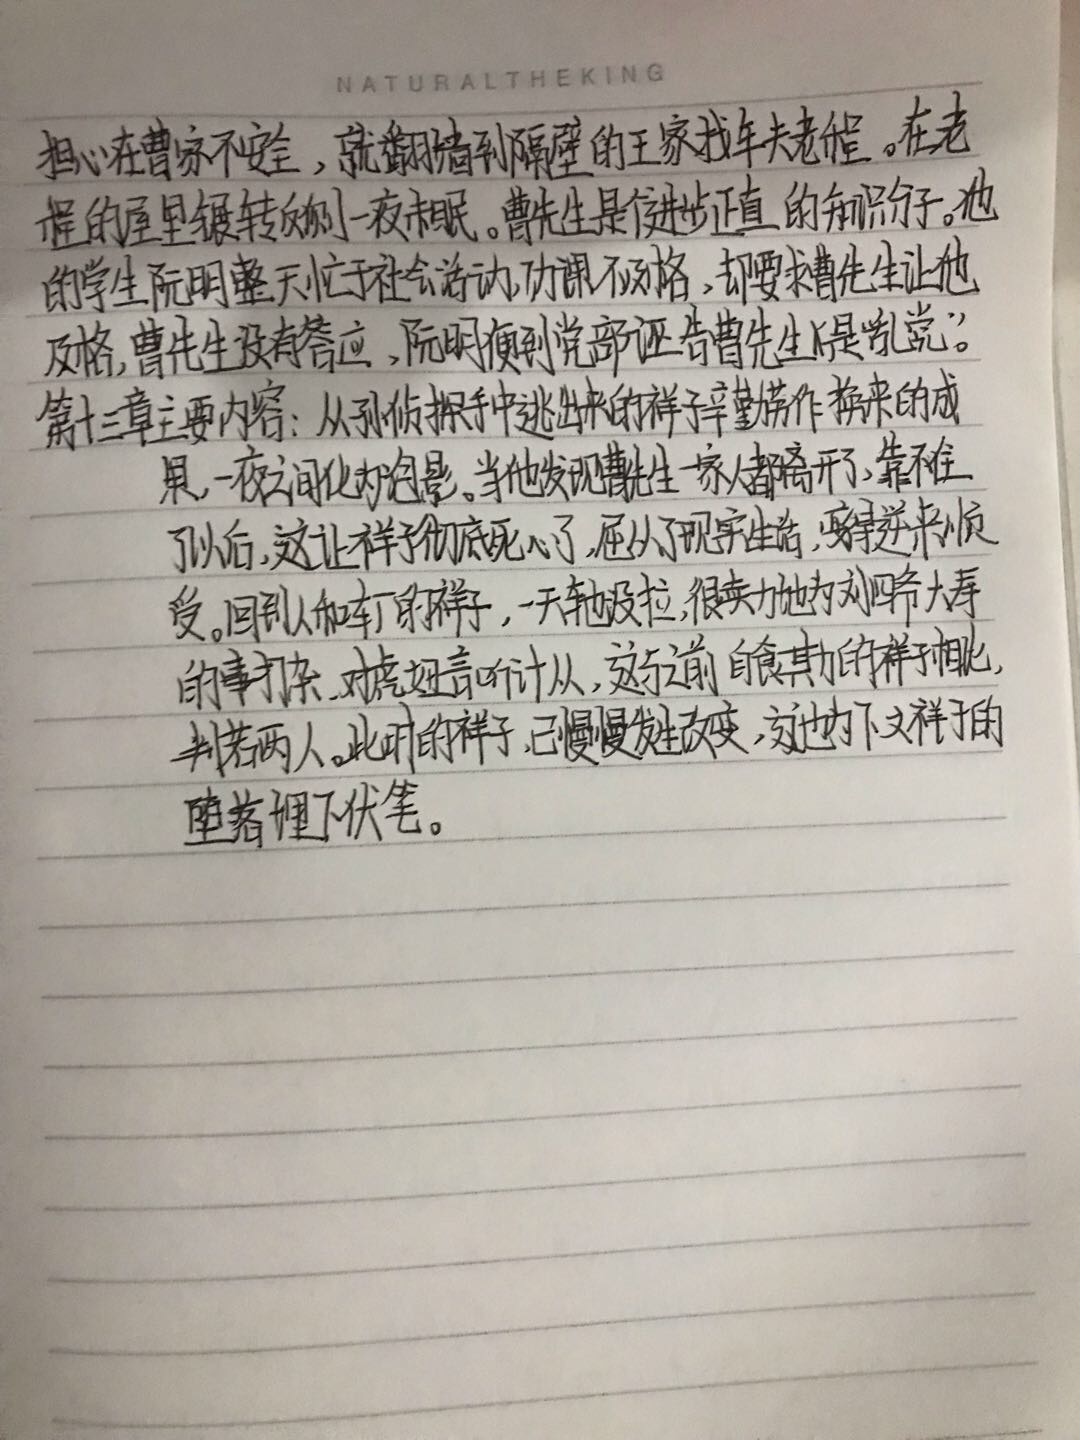 NATURALTHEKING
担心在曹家不安全，就翻墙到隔壁的王家找车夫老程。在老
程的屋里辗转反侧一夜未眠。曹先生是个进步正直的知识分子。他
的学生阮明整天忙于社会活动，功课不及格，却要求曹先生让他
及格，曹先生没有答应，阮明便到党部诬告曹先生“是乱党”。
第十三章主要内容：从孙侦探手中逃出来的祥子辛勤劳作换来的成
果，一夜之间化为泡影。当他发现曹先生一家人都离开了，靠不住
了以后，这让祥子彻底死心了，屈从了现实生活，变得逆来顺
受。回到人和车厂的祥子，一天车也没拉，很卖力地为刘四爷大寿
的事打杂，对虎妞言听计从，这与之前自食其力的祥子相比，
判若两人。此时的祥子，已慢慢发生改变，这也为下文祥子的
堕落埋下伏笔。